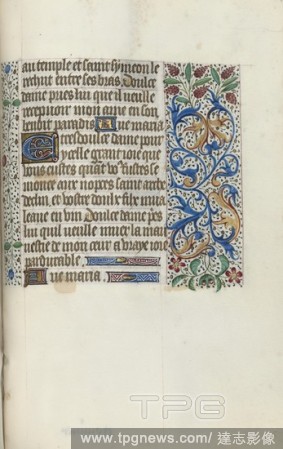 au temple et saint symeon le
rechut entre ses bras Doulce
dame pries lui que il vueille
recepvoir mon ame en son
paradis Ave maria
Tresdoulce dame pour
icelle grant ioie que
vous eustes quant vo' fustes se
monce aux nopces saint arche
declin et vostre doulx filz mua
leaue en vin Doulce dame pries
lui qu il vueille muer la
mestie de mon cuer a vraye ioie
pardurable
Ave maria
TPG
www.tpgnews.com/達志影像